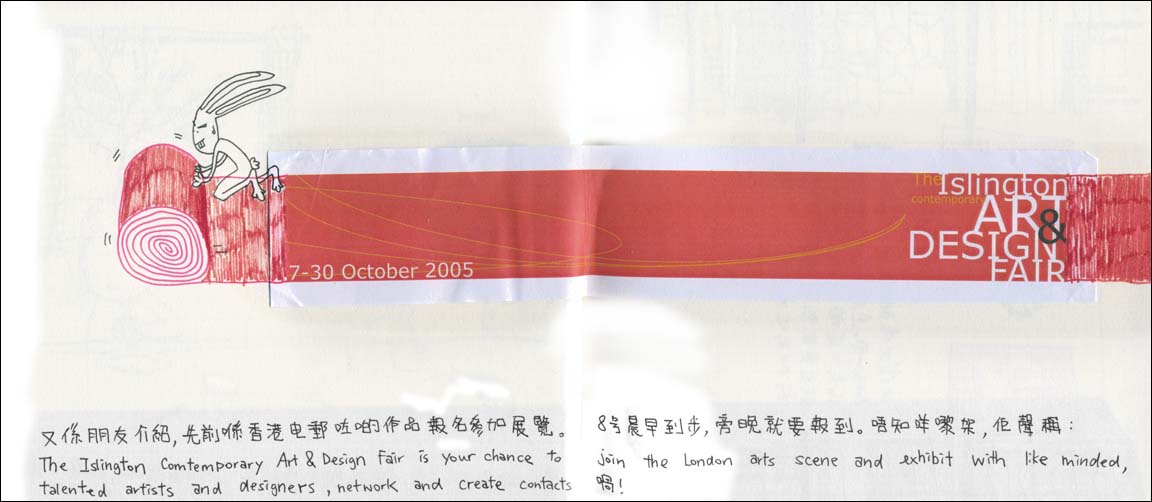 The
Islington
contemporary
ART
&
DESIGN
FAIR
7-30 October 2005
又係朋友介紹,先前喺香港电郵咗啲作品報名參加展覽。 8号晨早到步,旁晚就要報到。唔知咩嚟架,佢聲稱:
The Islington Comtemporary Art & Design Fair is your chance to join the London arts scene and exhibit with like minded,
talented artists and designers, network and create contacts 喎!